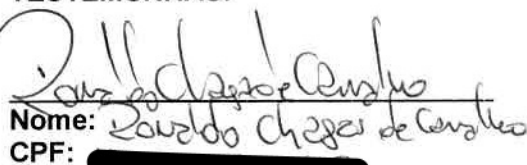 Ronaldo Chagas de Carvalho
Nome: Ronaldo Chagas de Carvalho
CPF: